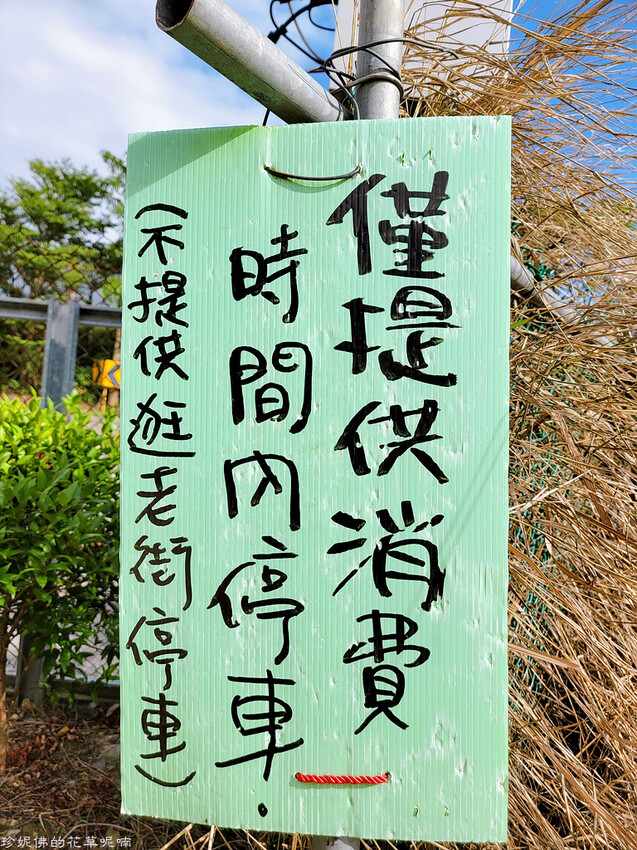 僅提供消費
時間內停車.
(不提供逛老街停車)
珍妮佛的花草呢喃